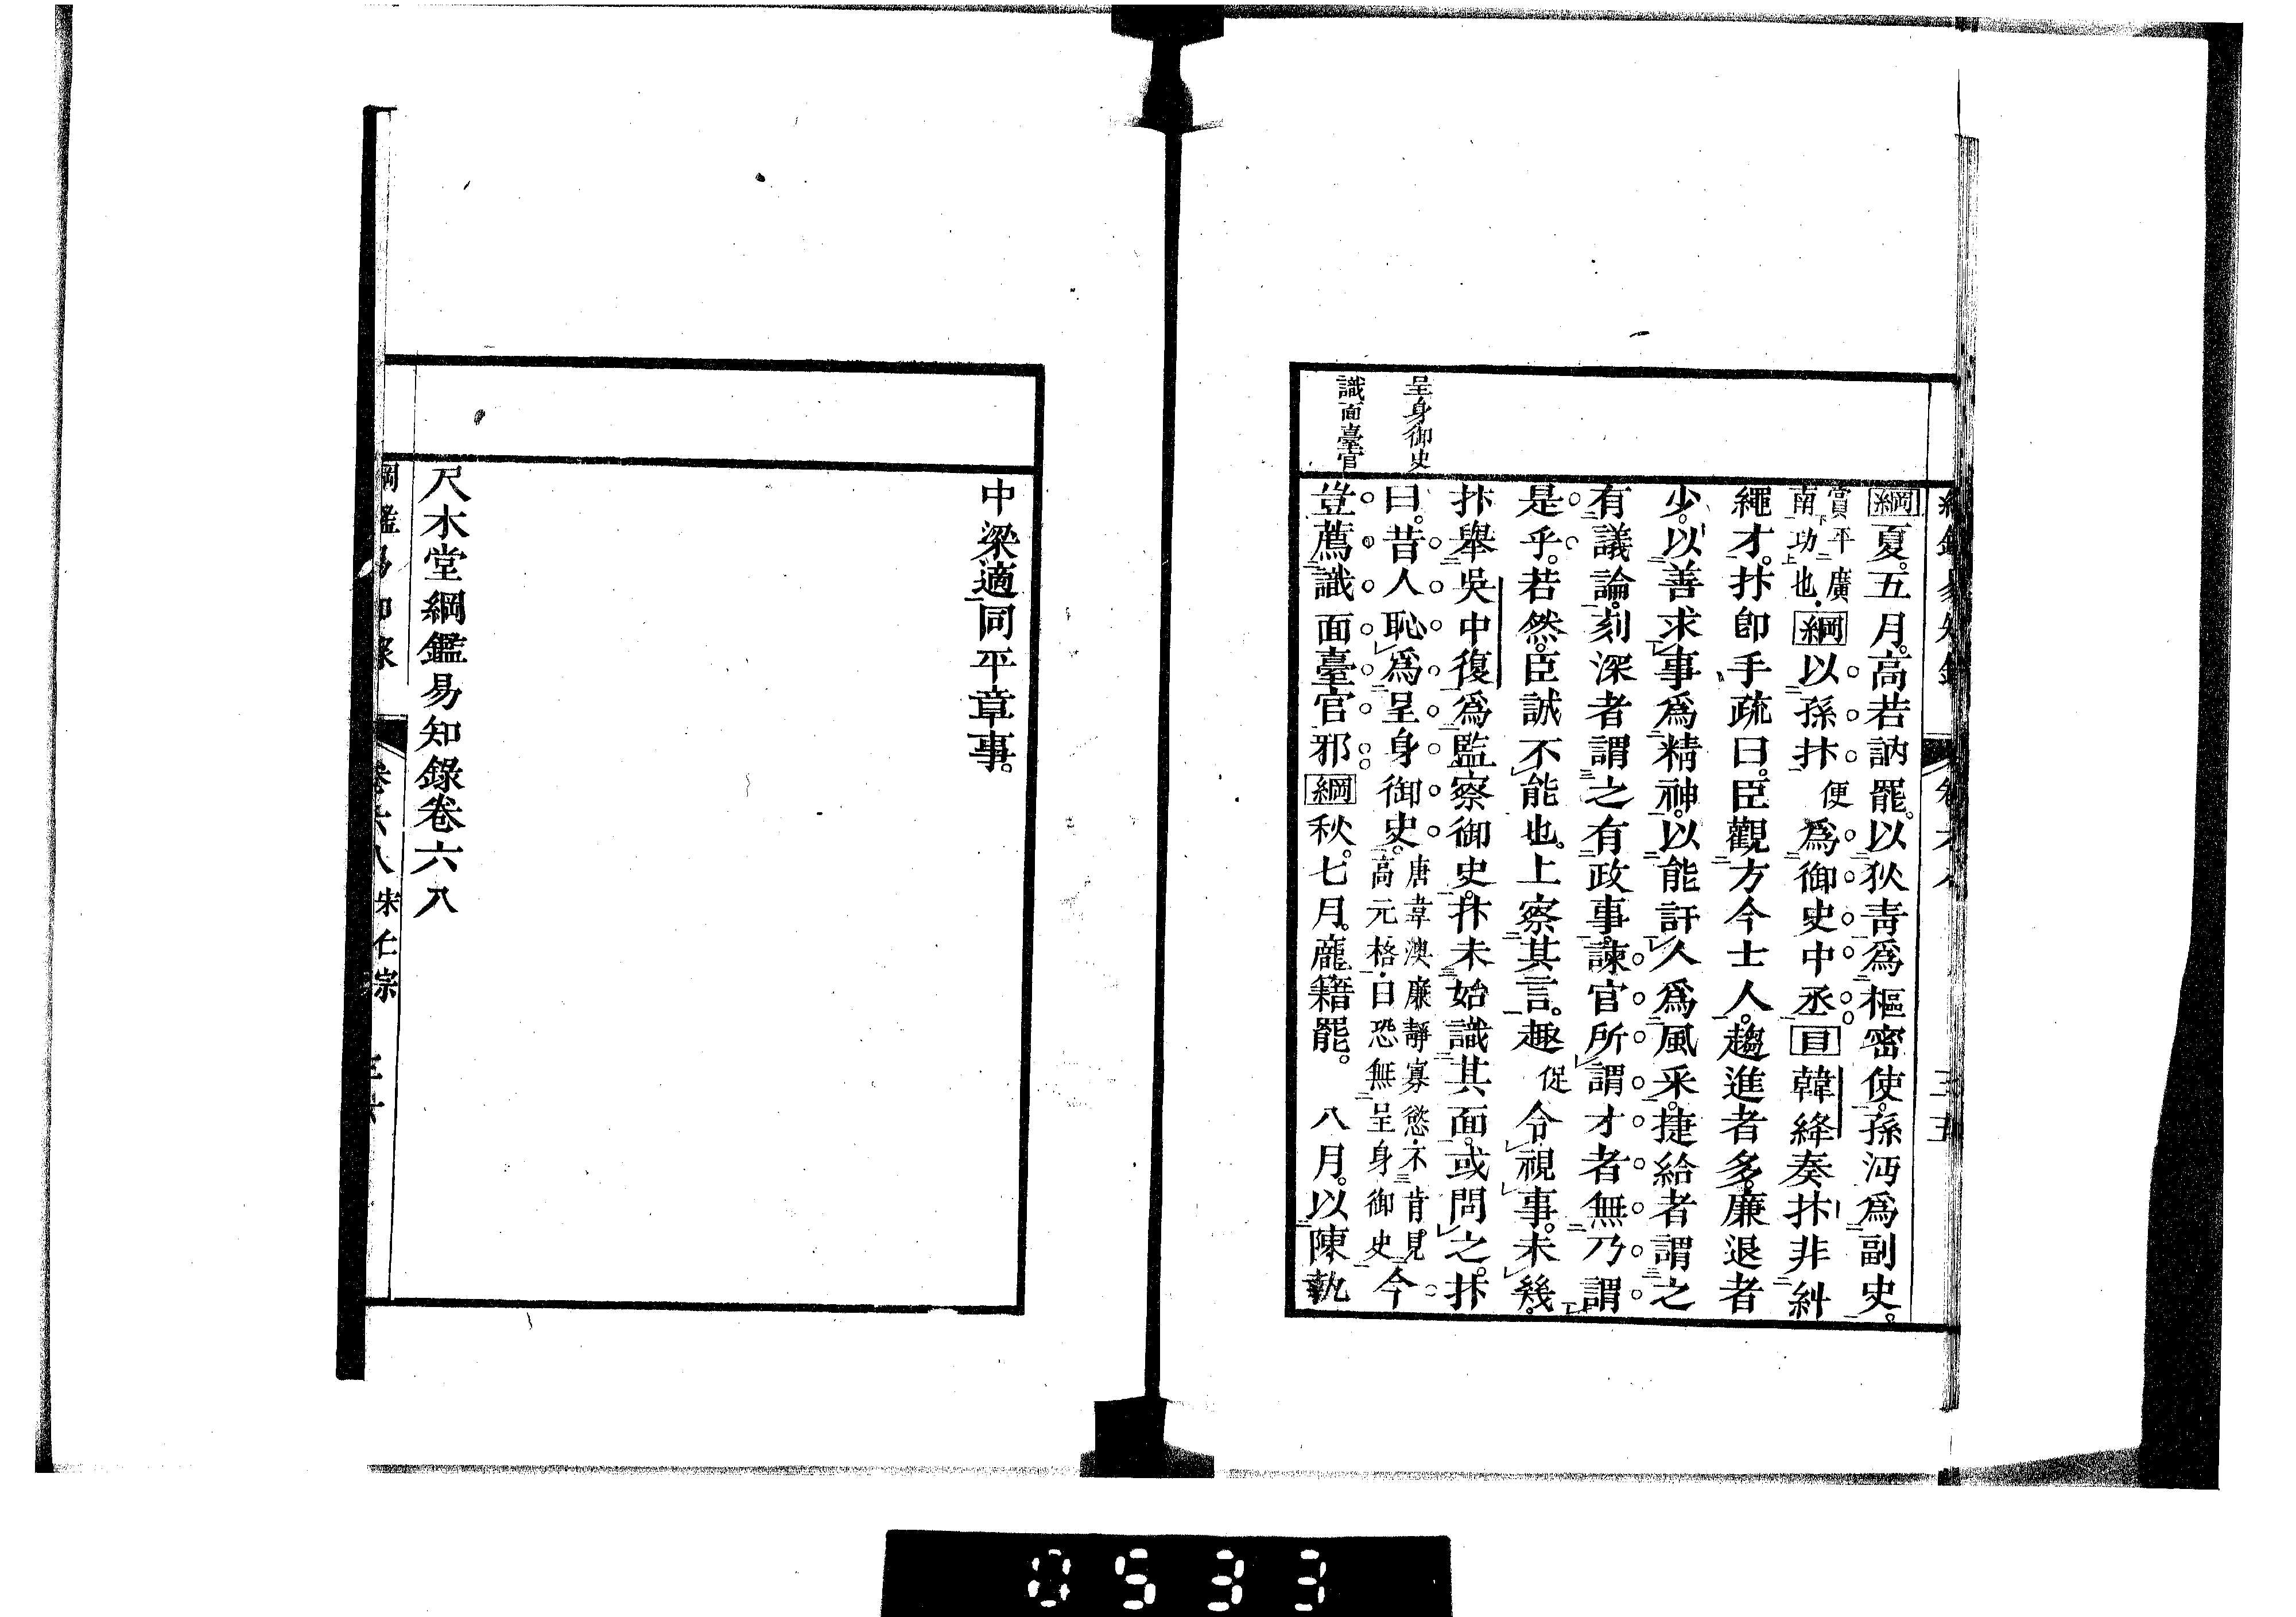 呈身御史
識面臺官
綱夏。五月。高若訥罷。以狄青爲樞密使。孫沔爲副史。
賞平廣
南功也。綱以孫抃便爲御史中丞目韓絳奏抃非糾
繩才。抃卽手疏曰。臣觀方今士人。趨進者多。廉退者
少。以善求事爲精神。以能訐人爲風采。捷給者謂之
有議論。刻深者謂之有政事。諫官所謂才者無乃謂
是乎。若然。臣誠不能也。上察其言。趣促令視事。未幾。
抃舉吳中復爲監察御史。抃未始識其面。或問之。抃
曰。昔人恥爲呈身御史。唐韋澳廉靜寡慾。不肯見
高元格。曰恐無呈身御史今
豈薦識面臺官邪綱秋。七月。龐籍罷。 八月。以陳執
中梁適同平章事。
尺木堂綱鑑易知錄卷六八
綱鑑易知錄 卷六八 宋仁宗
0533